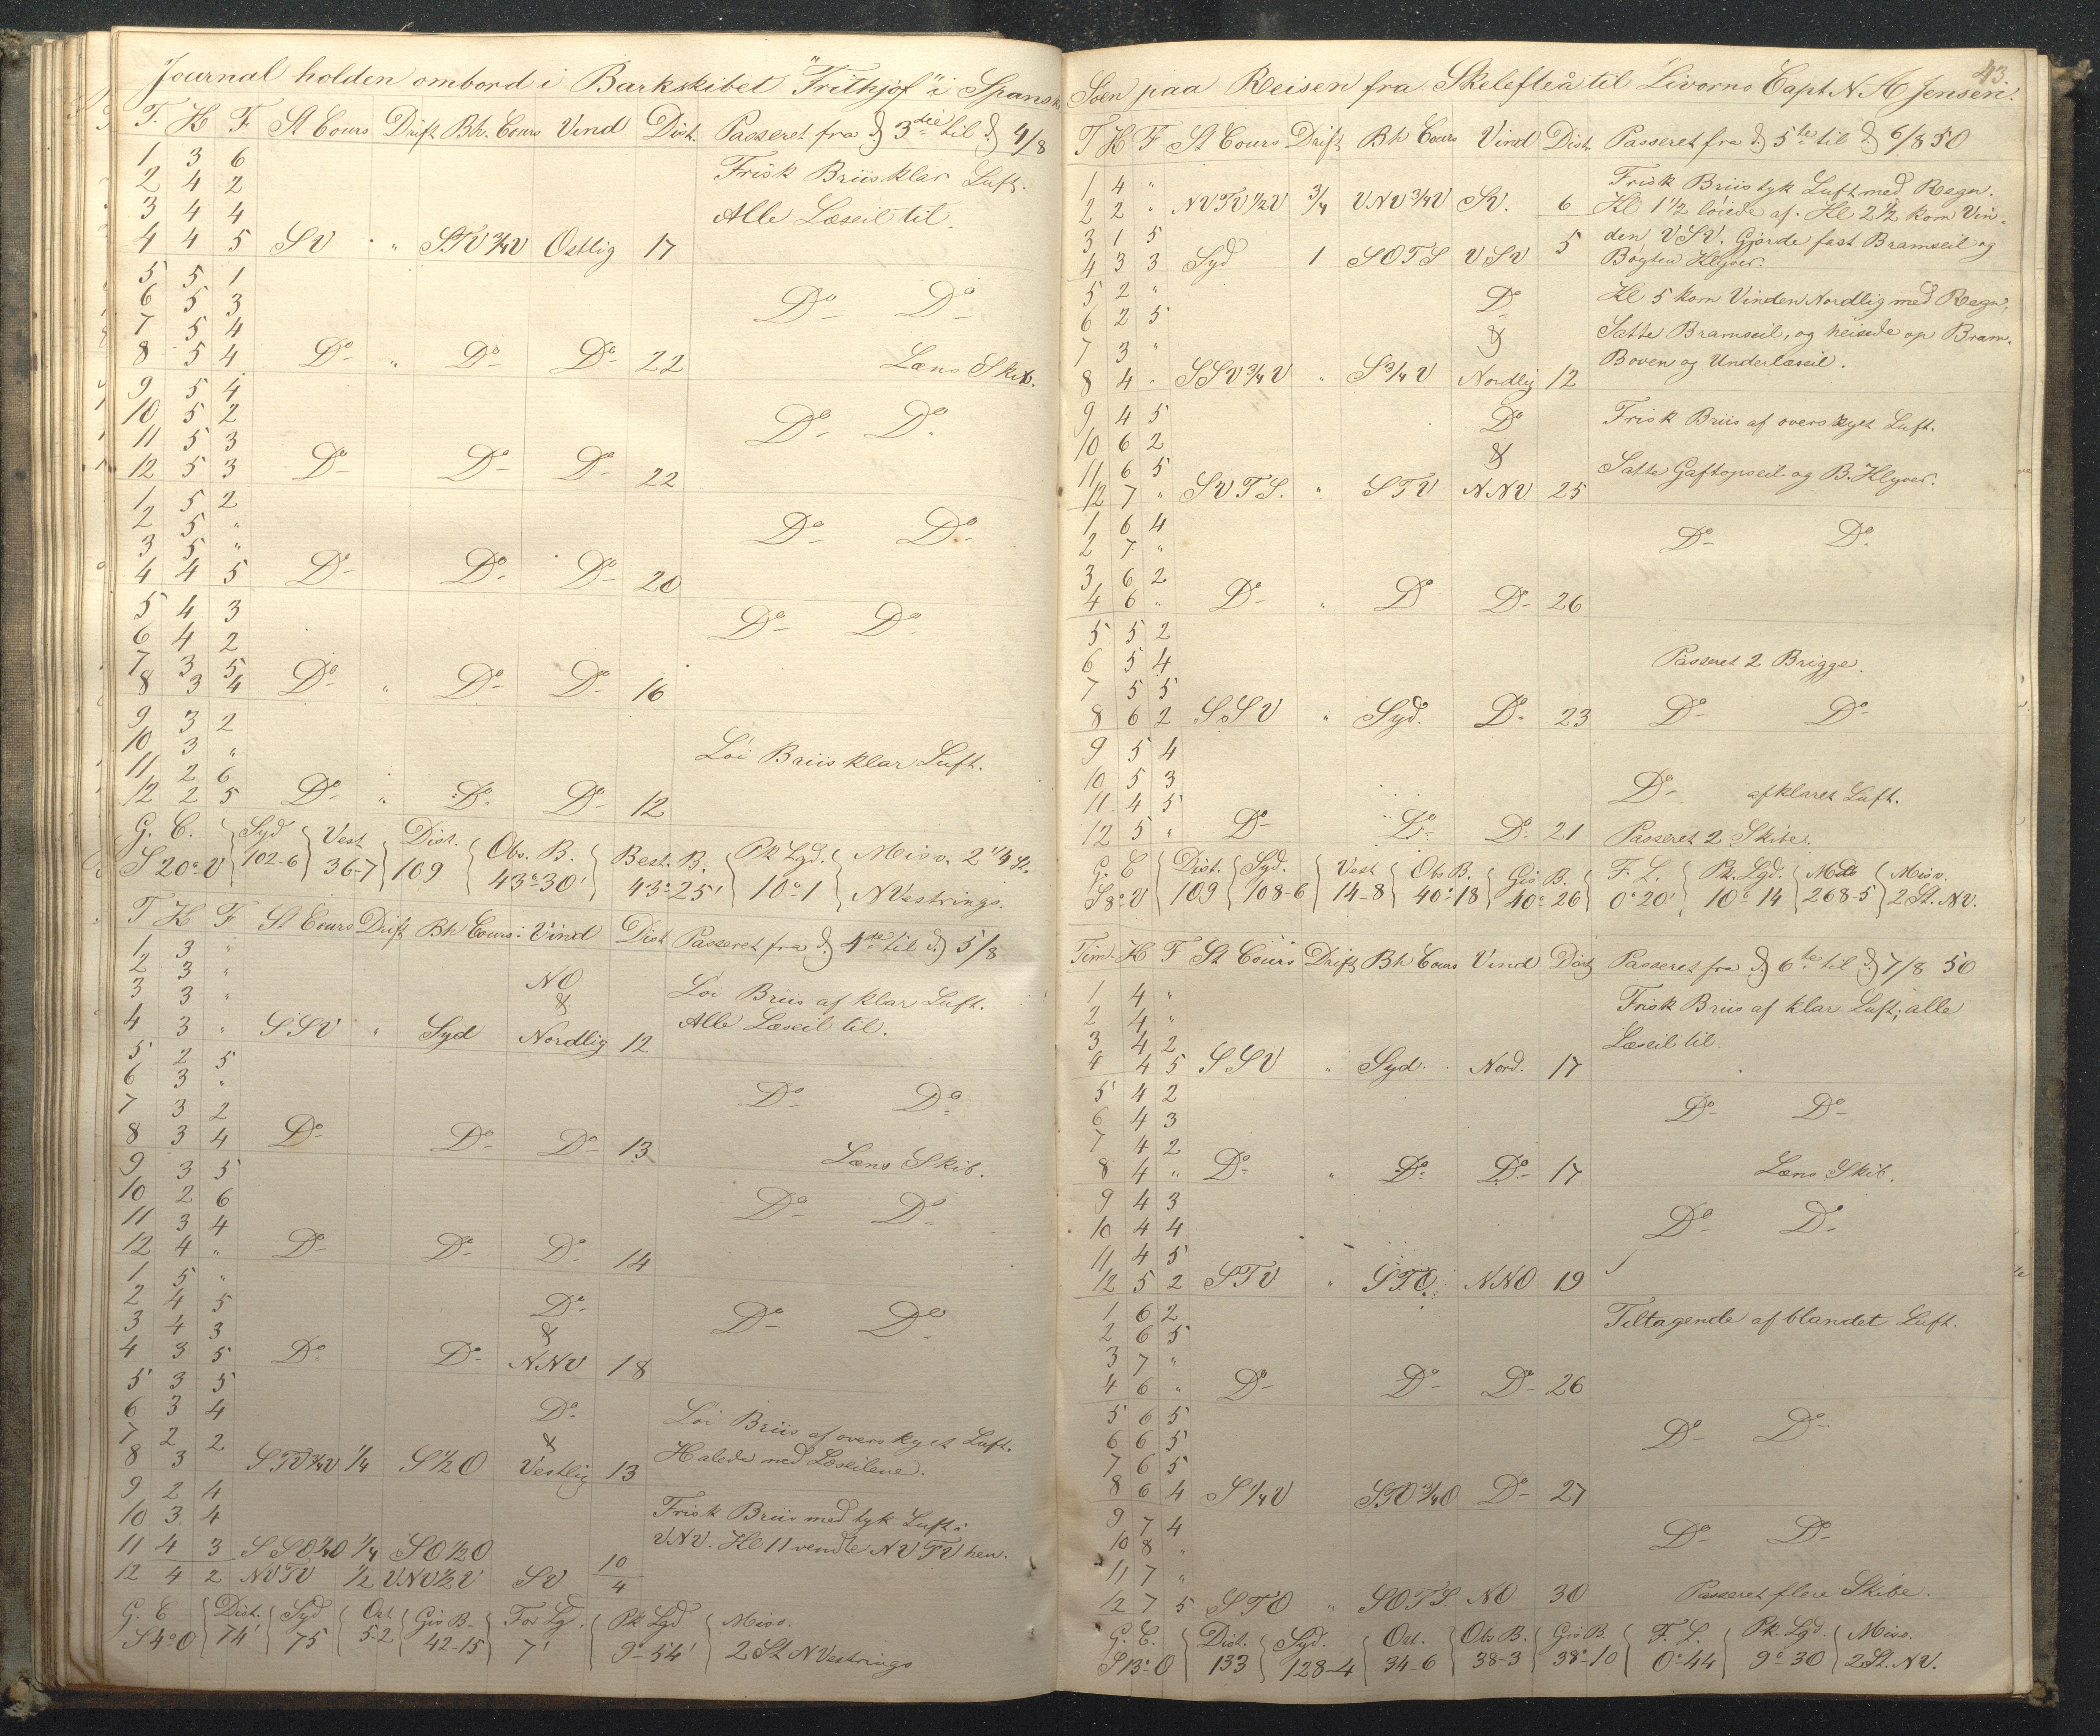 Journal holden ombord i Barkskibet "Frithjof" i Spanske
T. K F St Cours Drift Bh. Cours Vind Dist. Passeret fra d. 3die til d. 4/8
1 3 6 Frisk Briis klar Luft.
2 4 2
3 4 4 Alle Læseil til.
4 4 5 SV " STV 3/4 V Ostlig 17
5 5 1
6 5 3 Do Do
7 5 4
8 5 4 Do " Do Do 22 Læns Skib.
9 5 4
10 5 2 Do Do
11 5 3
12 5 3 Do Do Do 22
1 5 2
2 5 " Do Do
3 5 "
4 4 5 Do Do Do 20
5 4 3 Do Do
6 4 2
7 3 5
8 3 4 Do " Do Do 16
9 3 2
10 3 " Löi Briis klar Luft.
11 2 6
12 2 5 Do " Do Do 12
G. C. Syd Vest Dist. Obs. B. Best. B. Pk Lgd. Misv. 2 1/4 St.
S 20° V 102-6 36-7 109 43°30' 43°25' 10°1 NVestrings.
T K F St Cours Drift Bh Cours Vind Dist Passeret fra d. 4de til d. 5/8
1 3 "
2 3 " NO Löi Briis af klar Luft.
3 3 " & Alle Læseil til.
4 3 " SSV " Syd Nordlig 12
5 2 5
6 3 " Do Do
7 3 2
8 3 4 Do Do Do 13 Læns Skib.
9 3 5
10 2 6 Do Do
11 3 4
12 4 " Do Do Do 14
1 5 "
2 4 5 Do Do Do
3 4 3 &
4 3 5 Do Do NNV 18
5 3 5
6 3 4 Do Löi Briis af overskyet Luft.
7 2 2 & Halede ned Læseilene.
8 3 STV 3/4 V 1/4 S 1/2 O Vestlig 13
9 2 4 Frisk Briis med tyk Luft i
10 3 4 VNV. Kl 11 vendte NVTV hen.
11 4 3 SSO 1/4 O 1/4 SO 1/2 O 10
12 4 2 NVTV 1/2 VNV 1/2 V SV 4
G. C Dist. Syd Ost Gis B. For Lg. Pk Lgd Misv.
S 4° O 74' 75 5-2 42-15 7' 9-54' 2 St NVestrings
43.
Söen paa Reisen fra Skelefteå til Livorno Capt. N. A Jensen.
T K F St Cours Drift Bh Cours Vind Dist. Passeret fra d. 5te til d. 6/8 50
1 4 " Frisk Briis tyk Luft med Regn.
2 2 " NVTV 1/2 V 3/4 VNV 3/4 V SV. 6 Kl 1 1/2 löiede af. Kl 2 1/2 kom Vin-
3 1 5 den VSV. Gjorde fast Bramseil og
4 3 3 Syd 1 SOTS VSV 5 Böyten Klyver.
5 2 " Do Kl 5 kom Vinden Nordlig med Regn,
6 2 5 & Satte Bramseil, og heisede op Bram,
7 3 " Boven og Underlæseil.
8 4 " SSV 3/4 V " S 3/4 V Nordlig 12
9 4 5 Do Frisk Briis af overskyet Luft.
10 6 2 &
11 6 5 Satte Gaftopseil og B. Klyver.
12 7 " SVTS. " STV NNV 25
1 6 4
2 7 " Do Do
3 6 2
4 6 " Do " Do Do 26
5 5 2
6 5 4 Passeret 2 Brigge.
7 5 5
8 6 2 SSV " Syd. Do 23 Do Do
9 5 4
10 5 3 Do afklaret Luft.
11 4 5
12 5 " Do Do Do 21 Passeret 2 Skibet.
G. C Dist. Syd. Vest Obs B. Gis B. F. L. Pk. Lgd. Mdt Misv.
S 8° V 109 108-6 14-8 40°18 40°26 0°20' 10°14 268-5 2 St. NV.
Tim. K F St Cours Drift Bh Cours Vind Dist Passeret fra d. 6te til d. 7/8 50
1 4 " Frisk Briis af klar Luft; alle
2 4 "
3 4 2 Læseil til.
4 4 5 SSV " Syd. Nord. 17
5 4 2
6 4 3 Do Do
7 4 2
8 4 " Do " Do Do 17 Læns Skib.
9 4 3
10 4 4 Do Do
11 4 5
12 5 2 STV " STO. NNO 19
1 6 2 Tiltagende af blandet Luft.
2 6 5
3 7 "
4 6 " Do Do Do 26
5 6 5
6 6 5 Do Do
7 6 5
8 6 4 S 1/4 V STO 3/4 O Do 27
9 7 4
10 8 " Do Do
11 7 "
12 7 5 STO " SOTS. NO 30 Passeret flere Skibe.
G. C. Dist. Syd. Ost. Obs B. Gis B. F. L. Pk. Lgd. Misv.
S 13° O 133 128-4 34-6 38-3 38°10 0°44 9°30 2 St. NV.